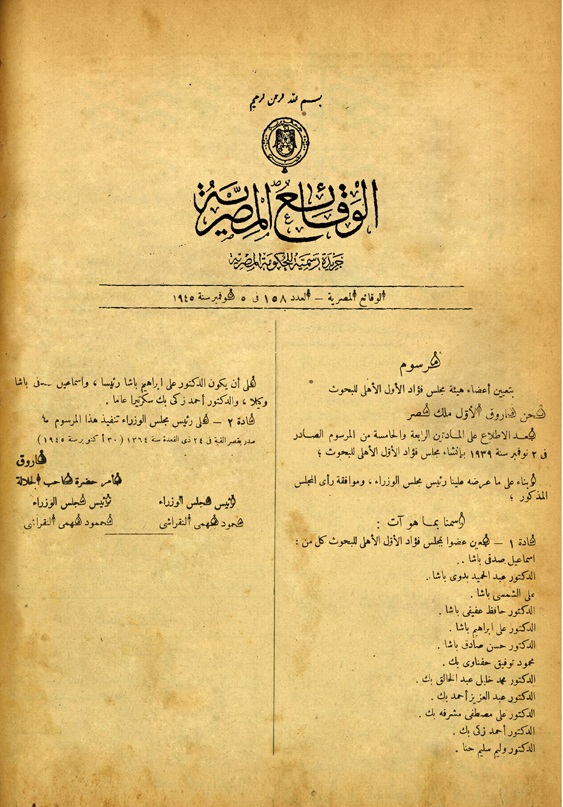 بسم الله الرحمن الرحيم
الوقائع المصرية
جريدة رسمية للحكومة المصرية
الوقائع المصرية – العدد ١٥٨ فى ٥ نوفمبر سنة ١٩٤٥
مرسوم
بتعيين أعضاء هيئة مجلس فؤاد الأول الأهلى للبحوث
نحن فاروق الأول ملك مصر
بعد الاطلاع على المادتين الرابعة والخامسة من المرسوم الصادر
فى ٢ نوفمبر سنة ١٩٣٩ بإنشاء مجلس فؤاد الأول الأهلى للبحوث ؛
وبناء على ما عرضه علينا رئيس مجلس الوزراء ، وموافقة رأى المجلس
المذكور ؛
رسمنا بما هو آت :
مادة ١ – يعين عضوا بمجلس فؤاد الأول الأهلى للبحوث كل من :
اسماعيل صدقى باشا .
الدكتور عبد الحميد بدوى باشا .
على الشمسى باشا .
الدكتور حافظ عفيفى باشا .
الدكتور على ابراهيم باشا .
الدكتور حسن صادق باشا .
محمود توفيق حفناوى بك .
الدكتور محمد خليل عبد الخالق بك .
الدكتور عبد العزيز أحمد بك .
الدكتور على مصطفى مشرفه بك .
الدكتور أحمد زكى بك .
الدكتور وليم سليم حنا .
على أن يكون الدكتور على ابراهيم باشا رئيسا ، واسماعيل صدقى باشا
وكيلا ، والدكتور أحمد زكى بك سكرتيرا عاما .
مادة ٢ – على رئيس مجلس الوزراء تنفيذ هذا المرسوم ؛
صدر بقصر القبة فى ٢٤ ذى القعدة سنة ١٣٦٤ (٣٠ أكتوبر سنة ١٩٤٥)
فاروق
بأمر حضرة صاحب الجلالة
رئيس مجلس الوزراء رئيس مجلس الوزراء
محمود فهمى النقراشى محمود فهمى النقراشى